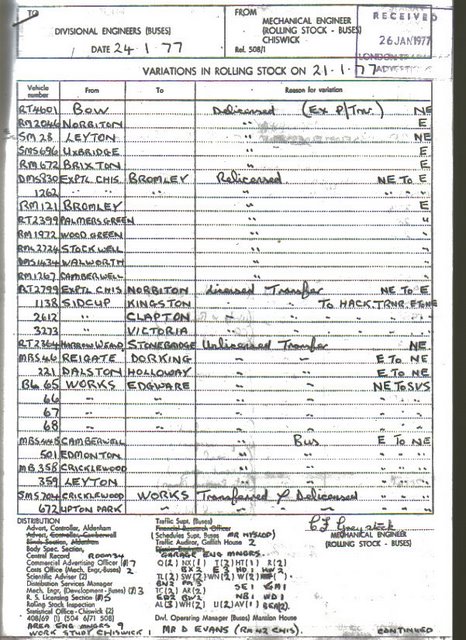 TO
DIVISIONAL ENGINEERS (BUSES)
DATE 24.1.77
FROM
MECHANICAL ENGINEER
(ROLLING STOCK - BUSES)
CHISWICK
Ref. 508/1
RECEIVED
26 JAN 1977
VARIATIONS IN ROLLING STOCK ON 21.1.77
Vehicle number From To Reason for variation
RT4601 BOW Delicensed (Ex P/Trnr.) NE
RM2046 NORBITON " E
SM 28 LEYTON " NE
SMS696 UXBRIDGE " E
RM 672 BRIXTON " E
DMS830 EXPTL CHIS. BROMLEY Relicensed. NE TO E
1262 " " " "
RM121 BROMLEY " E
RT2399 PALMERS GREEN " "
RM 1972 WOOD GREEN " "
RML2724 STOCKWELL " "
DMS1434 WALWORTH " "
RM1267 CAMBERWELL " "
RT2799 EXPTL CHIS NORBITON Licensed Transfer NE TO E
1138 SIDCUP KINGSTON " " TO HACK.TRNR. E TO NE
2612 " CLAPTON " "
3273 " VICTORIA " "
RT2364 HARROW WEALD STONEBRIDGE Unlicensed Transfer NE
MBS 46 REIGATE DORKING " " E TO NE
221 DALSTON HOLLOWAY " " E TO NE
BL 65 WORKS EDGWARE " " NE TO SVS
66 " " " " "
67 " " " " "
68 " " " " "
MBS448 CAMBERWELL " Bus E TO NE
501 EDMONTON " " "
MB 358 CRICKLEWOOD " " "
359 LEYTON " " "
SMS704 CRICKLEWOOD WORKS Transferred & Delicensed "
672 UPTON PARK " " " "
DISTRIBUTION
Advert. Controller, Aldenham
Advert. Controller, Camberwell
Body Spec. Section,
Central Record ROOM 34
Commercial Advertising Officer
Costs Office (Mech. Engr. Buses) 2
Scientific Adviser (2)
Distribution Services Manager
Mech. Engr. (Development - Buses)
R. S. Licensing Section
Rolling Stock Inspection
Statistical Office, Chiswick (2)
408/69 (1) 504 6/71 508)
AREA ENG MNGRS 9
WORK STUDY CHISWICK 1
Traffic Supt. (Buses)
Financial Research Officer
(Schedules Supt. Buses MR HYSLOP)
Traffic Auditor, Griffith House 2
GARAGE ENG MNGRS.
Divl. Operating Manager (Buses) Mansion House
MR D EVANS (RM 2 CHIS).
MECHANICAL ENGINEER
(ROLLING STOCK - BUSES)
CONTINUED